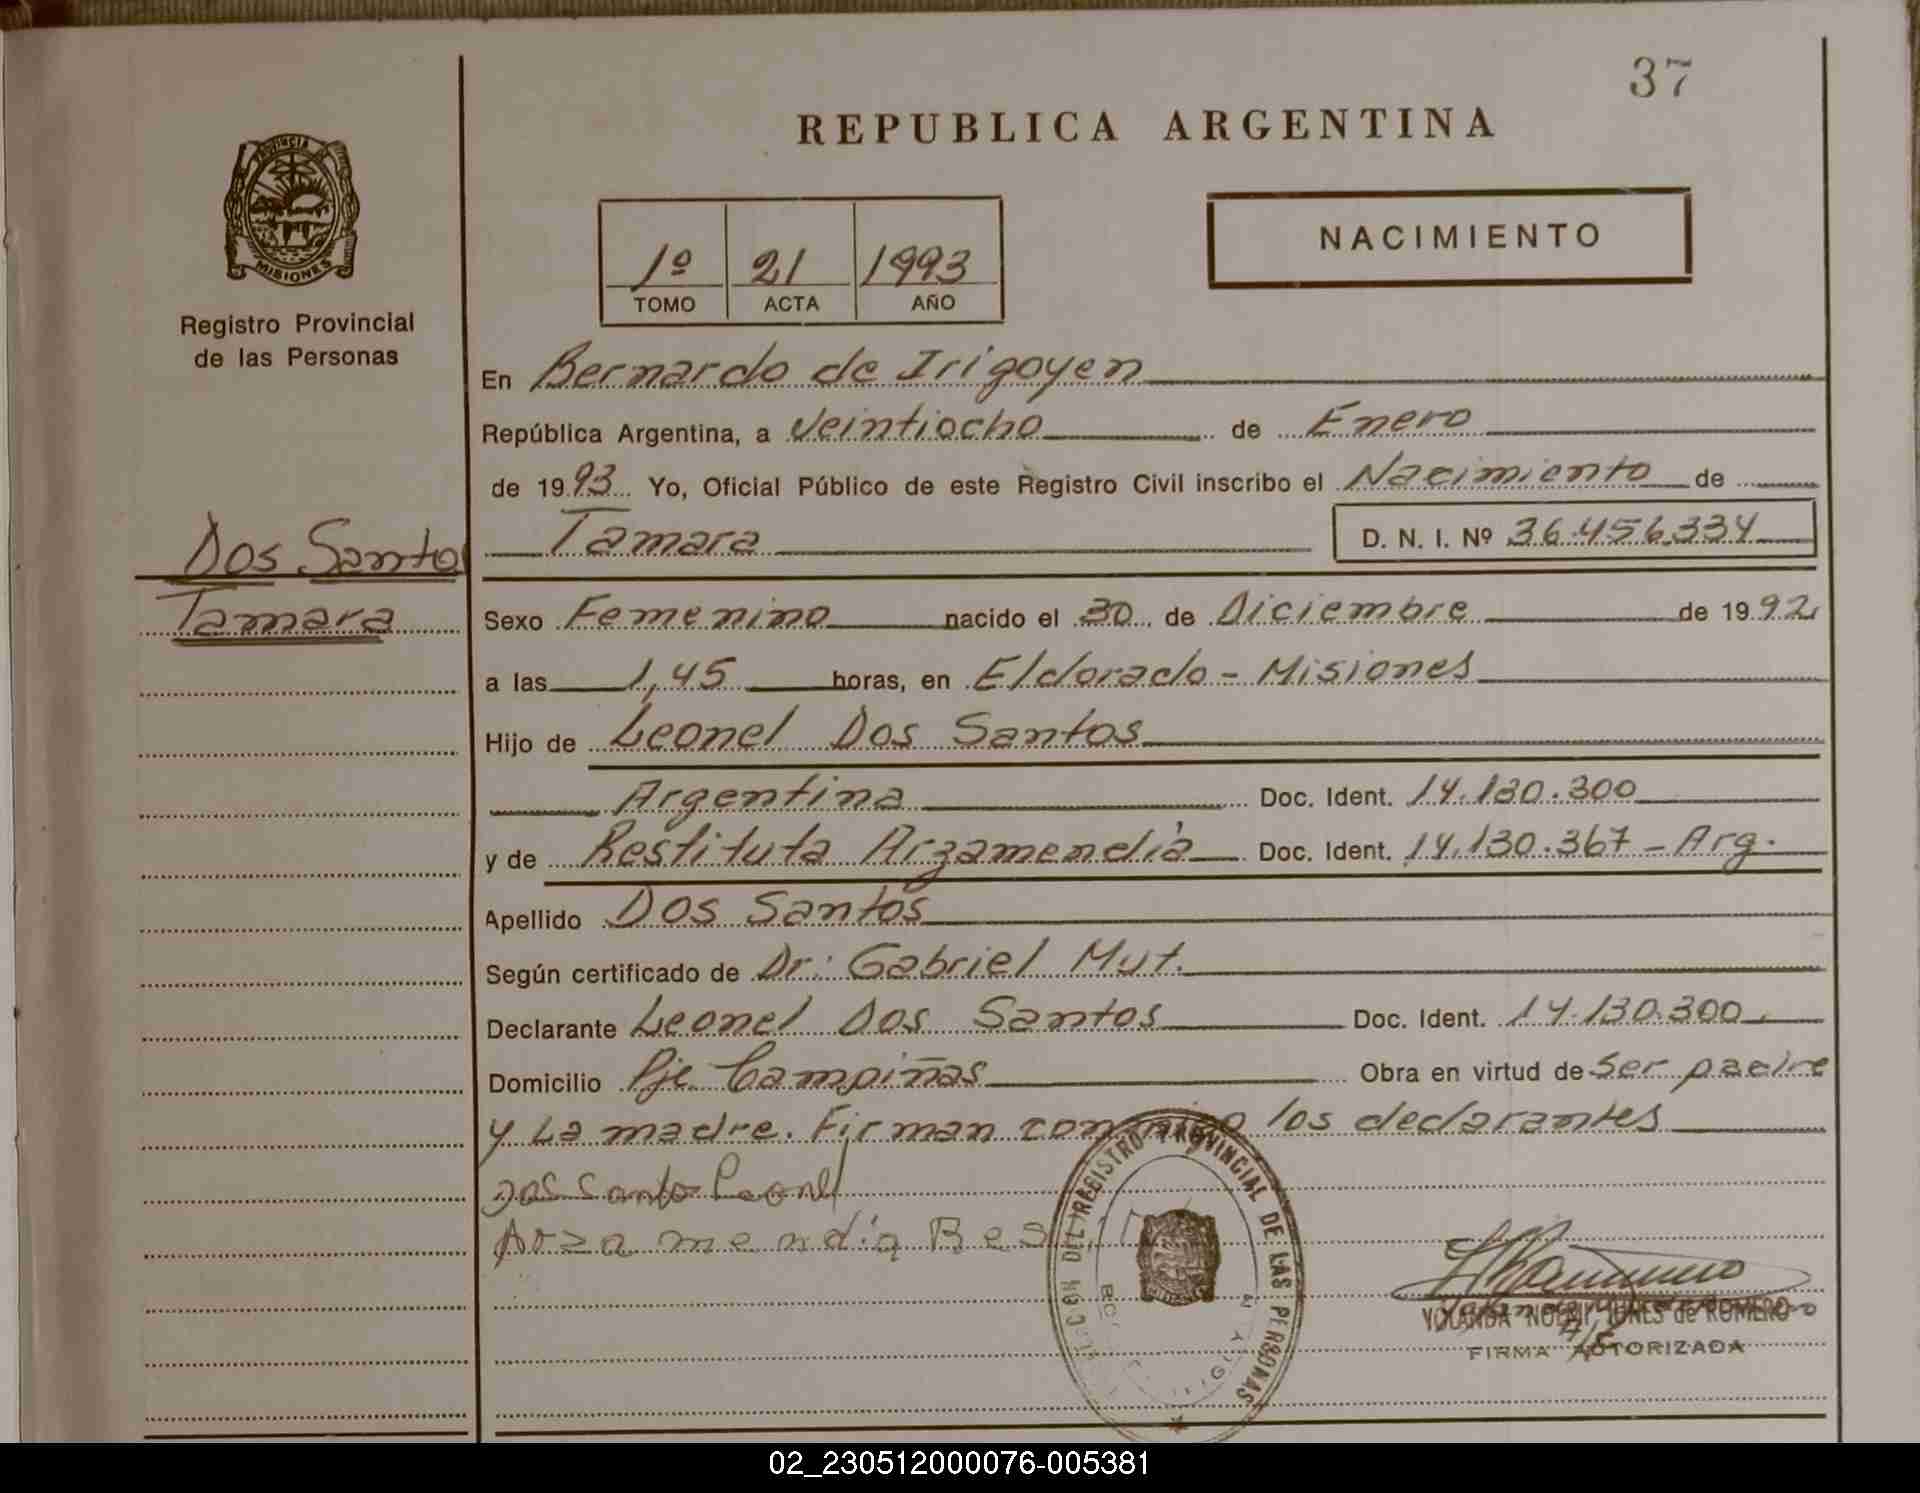 37
REPUBLICA ARGENTINA
PROVINCIA DE
MISIONES
Registro Provincial
de las Personas
1º 21 1993
TOMO ACTA AÑO
NACIMIENTO
En Bernardo de Irigoyen
República Argentina, a Veintiocho de Enero
de 1993 Yo, Oficial Público de este Registro Civil inscribo el Nacimiento de
Tamara D. N. I. Nº 36.456.334
Dos Santo
Tamara
Sexo Femenino nacido el 30 de Diciembre de 1992
a las 1,45 horas, en Eldorado - Misiones
Hijo de Leonel Dos Santos
Argentina Doc. Ident. 14.130.300
y de Restituta Arzamendia Doc. Ident. 14.130.367 - Arg.
Apellido Dos Santos
Según certificado de Dr: Gabriel Mut.
Declarante Leonel Dos Santos Doc. Ident. 14.130.300
Domicilio Pje Campiñas Obra en virtud de Ser padre
y La madre. Firman conmigo los declarantes
Dos Santo Leonel
Arzamendia Res
DEL REGISTRO PROVINCIAL DE LAS PERSONAS
YOLANDA NOEMI de ROMERO
FIRMA AUTORIZADA
02_230512000076-005381